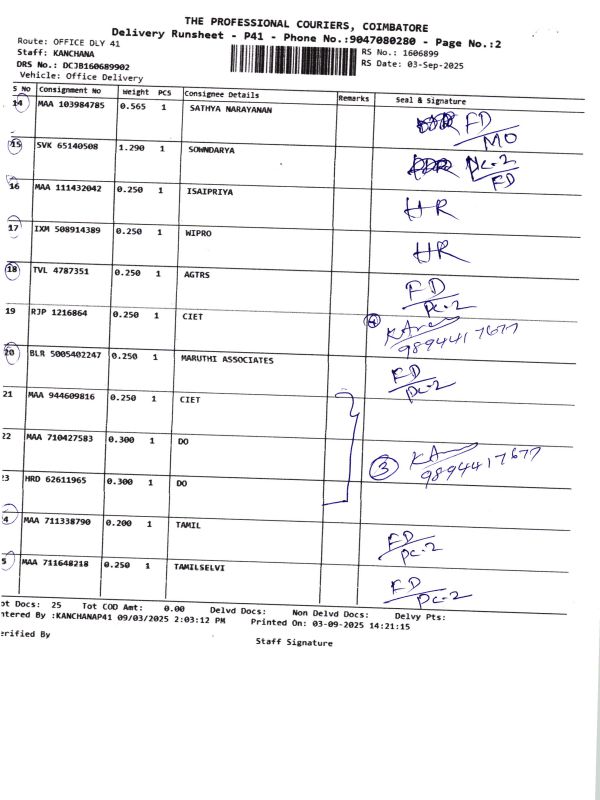 THE PROFESSIONAL COURIERS, COIMBATORE
Delivery Runsheet - P41 - Phone No.:9047080280 - Page No.:2
Route: OFFICE DLY 41 RS No.: 1606899
Staff: KANCHANA RS Date: 03-Sep-2025
DRS No.: DCJB160689902
Vehicle: Office Delivery
S No Consignment No Weight PCS Consignee Details Remarks Seal & Signature
14 MAA 103984785 0.565 1 SATHYA NARAYANAN FD
MO
15 SVK 65140508 1.290 1 SOWNDARYA PC-2
FD
16 MAA 111432042 0.250 1 ISAIPRIYA HR
17 IXM 508914389 0.250 1 WIPRO HR
18 TVL 4787351 0.250 1 AGTRS FD
PC-2
19 RJP 1216864 0.250 1 CIET
9894417677
20 BLR 5005402247 0.250 1 MARUTHI ASSOCIATES FD
PC-2
21 MAA 944609816 0.250 1 CIET
22 MAA 710427583 0.300 1 DO 3 KA
9894417677
23 HRD 62611965 0.300 1 DO
4 MAA 711338790 0.200 1 TAMIL FD
PC-2
5 MAA 711648218 0.250 1 TAMILSELVI FD
PC-2
ot Docs: 25 Tot COD Amt: 0.00 Delvd Docs: Non Delvd Docs: Delvy Pts:
ntered By :KANCHANAP41 09/03/2025 2:03:12 PM Printed On: 03-09-2025 14:21:15
erified By
Staff Signature